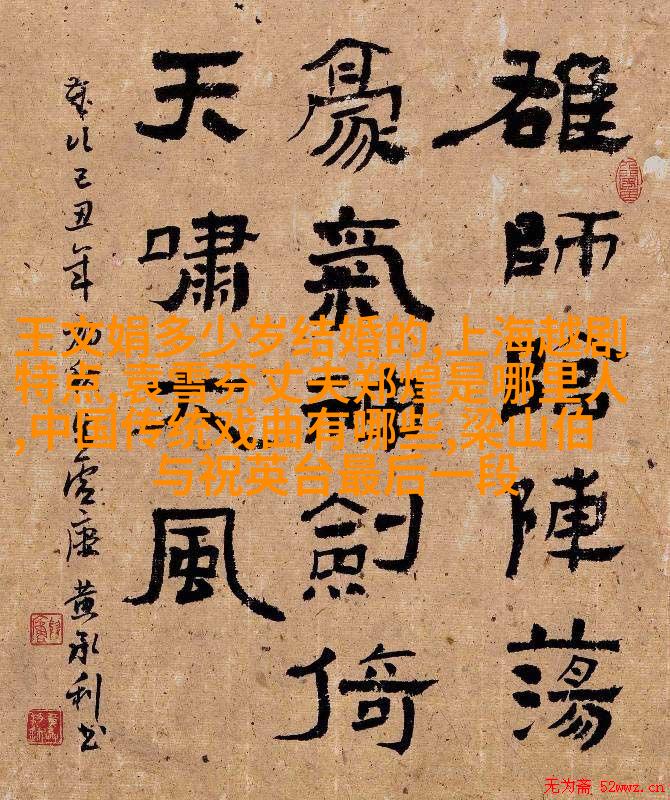 雄師臨陣蕩
豪氣劍倚
天嘯大風
歲次己丑年
黃承利书
王文娟多少岁结婚的,上海越剧
特点,袁雪芬丈夫郑煌是哪里人
,中国传统戏曲有哪些,梁山伯
与祝英台最后一段
无为斋 52wwz.cn